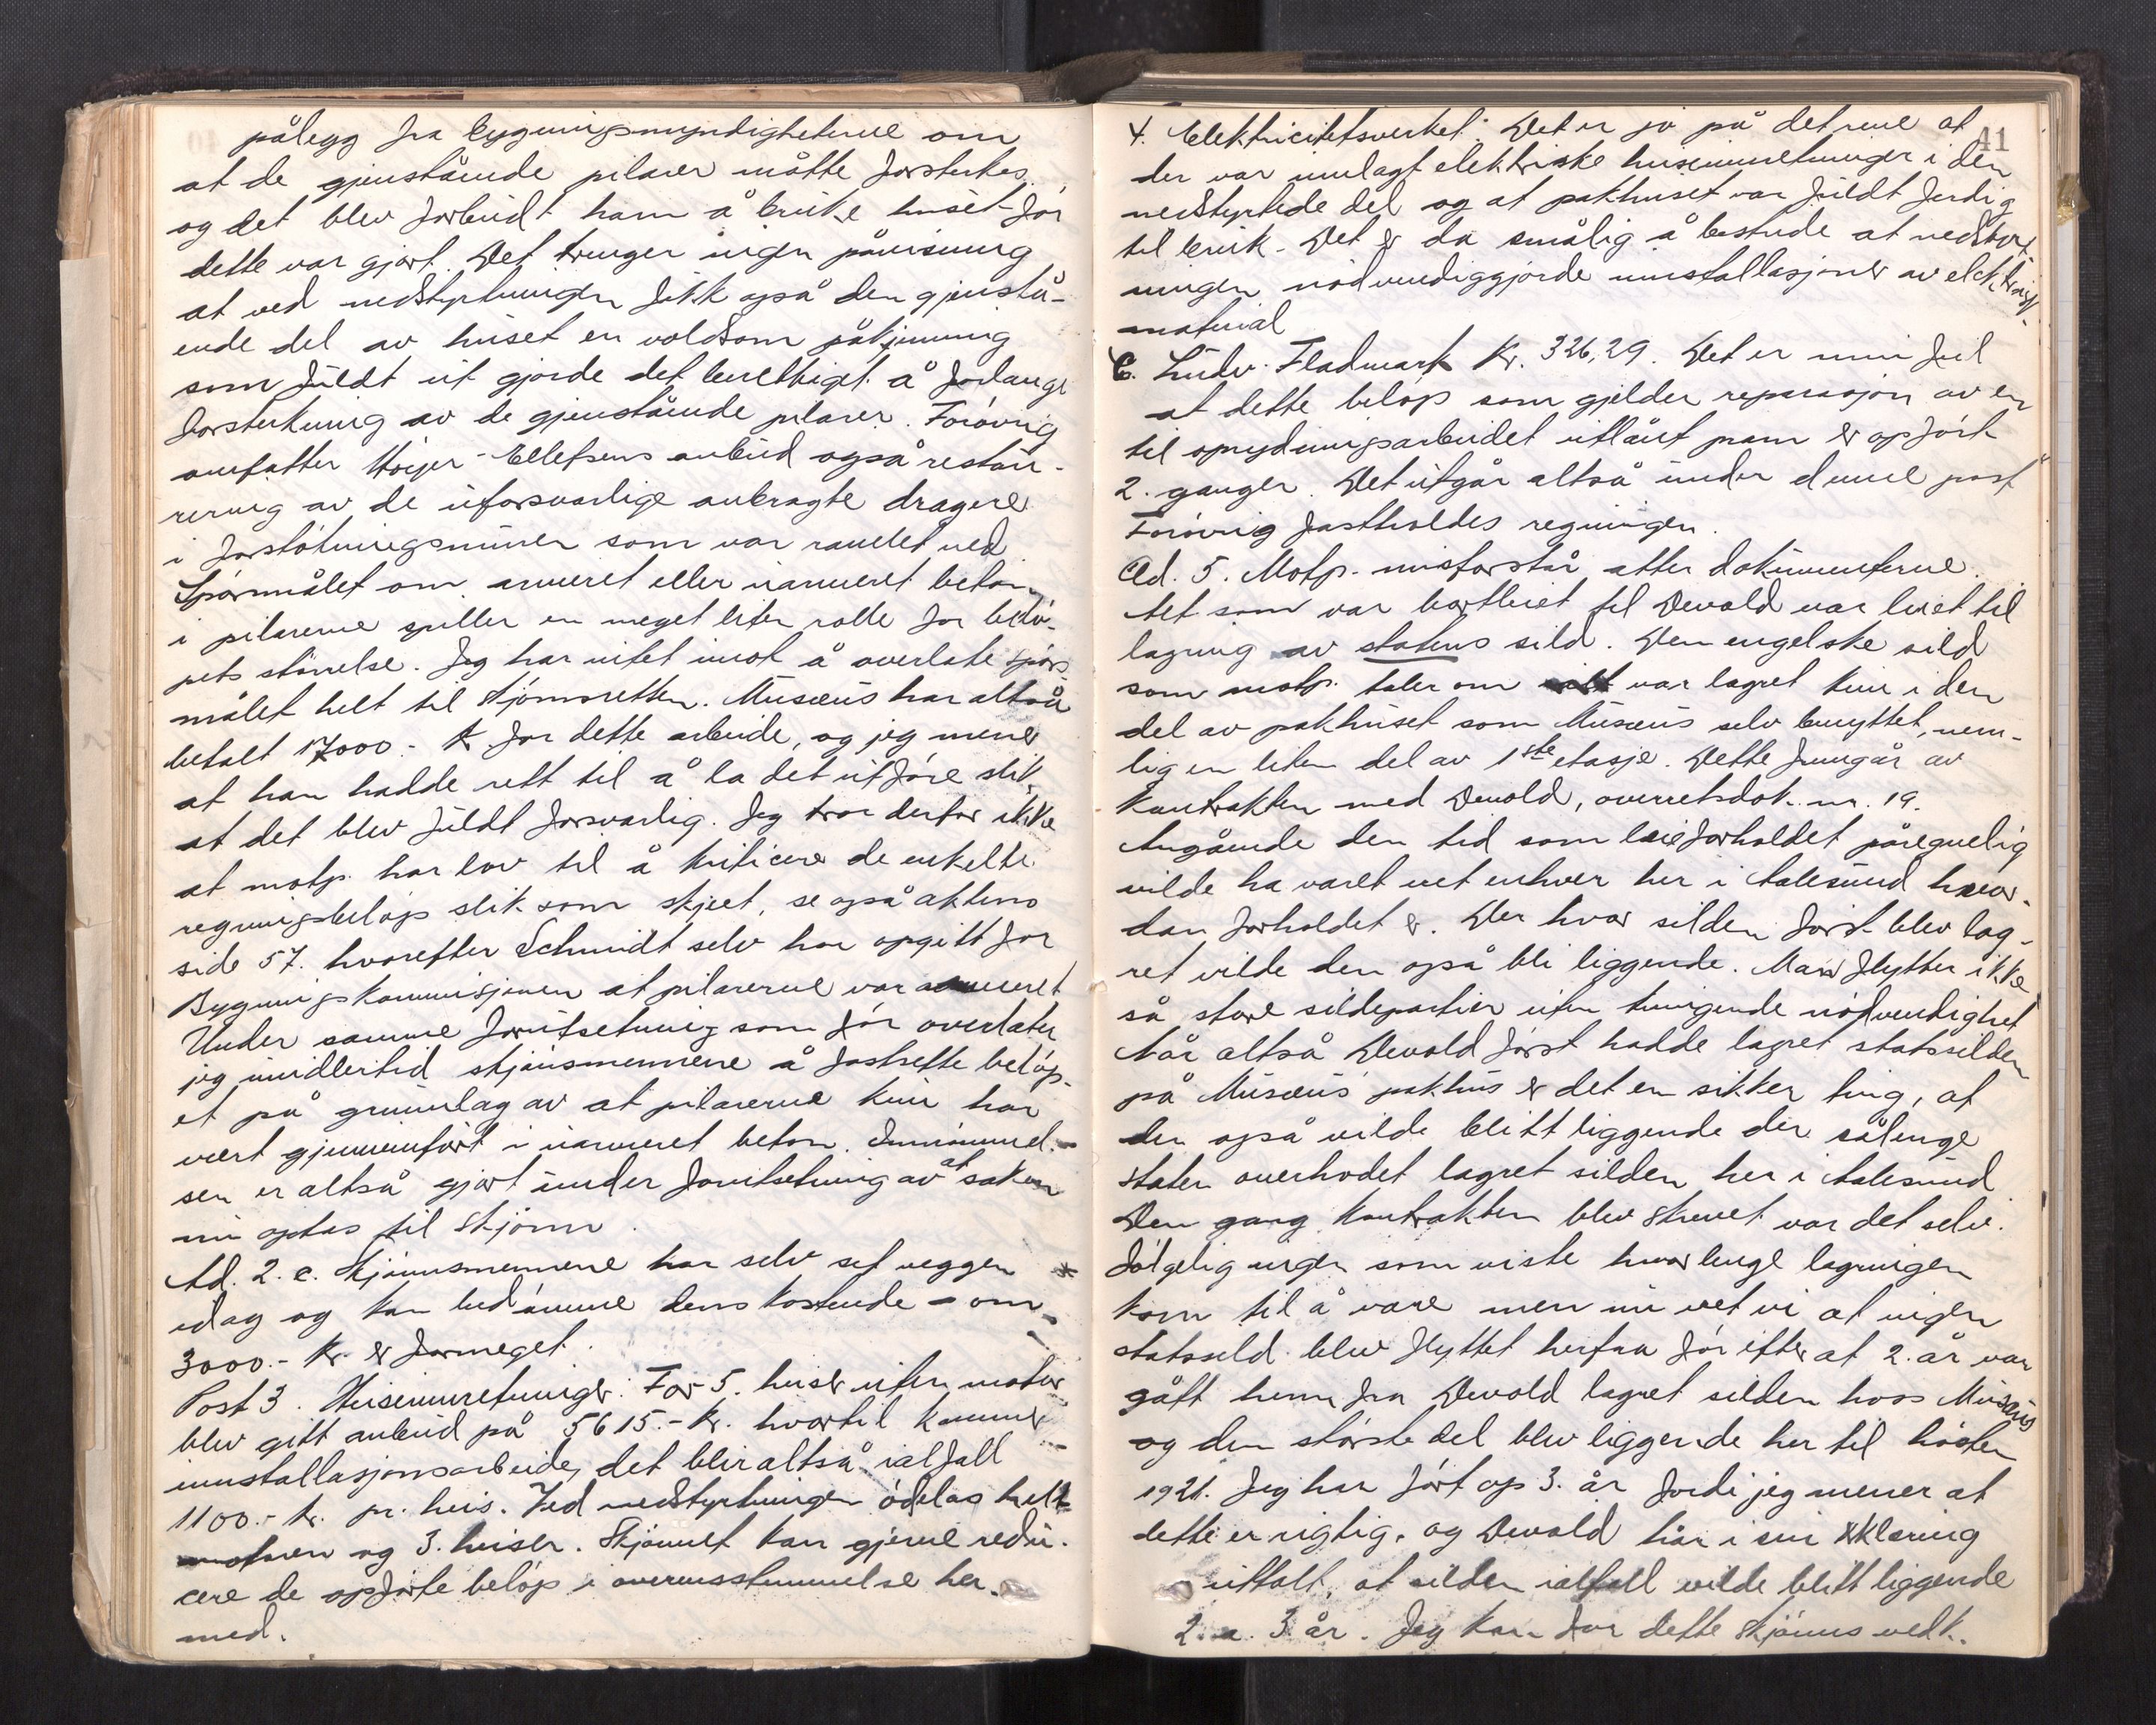 pålegg fra bygningsmyndigheterne om
at de gjenstående pilarer måtte forsterkes.
og det blev forbudt ham å bruke huset før
dette var gjort. Det trenger ingen påvisning
at ved nedstyrtningen fikk også den gjenstå-
ende del av huset en voldsom påkjenning
som fuldt ut gjorde det berettiget å forlange
forsterkning av de gjenstående pilarer. Forøvrig
omfatter Høyer-Ellefsens anbud også restau-
rering av de uforsvarlige anbragte dragere
i forstøtningsmuren som var ramlet ned
Spørsmålet om armeret eller uarmeret beton
i pilarerne spiller en meget liten rolle for belø-
pets størrelse. Jeg har intet imot å overlate spørs-
målet helt til skjønsretten. Musæus har altså
betalt 17000.- kr for dette arbeide, og jeg mener
at han hadde rett til å la det utføre slik,
at det blev fuldt forsvarlig. Jeg tror derfor ikke
at motp. har lov til å kriticere de enkelte
regningsbeløp slik som skjeet, se også aktens
side 57. hvorefter Schmidt selv har opgitt for
Bygningskommisjonen at pilarerne var armeret
Under samme forutsetning som før overlater
jeg imidlertid skjønsmennene å fastsette beløp-
et på grunnlag av at pilarerne kun har
vært gjennemført i uarmeret beton. Innrømmel-
sen er altså gjort under forutsetning av at saken
nu optas til skjønn.
Ad. 2. c. Skjønnsmennene har selv set veggen *
idag og kan bedømme dens kostende - om
3000.- kr. er formeget.
Post 3. Heiseinnretninger. For 5. heiser uten motor
blev gitt anbud på 5615.- kr. hvortil kommer
innstallasjonsarbeide, det blir altså ialfall
1100.- kr. pr. heis. Ved nedstyrtningen ødelas helt
motoren og 3. heiser. Skjønnet kan gjerne redu-
cere de opførte beløp i overensstemmelse her-
med.
41
4. Elektricitetsverket: Det er jo på det rene at
der var innlagt elektriske heiseinnretninger i den
nedstyrtede del og at pakhuset var fuldt ferdig
til bruk. Det er da smålig å bestride at nedstyrt-
ningen nødvendiggjorde innstallasjoner av elektrisk
material
C. Ludv. Fladmark Kr. 326,29. Det er min feil
at dette beløp som gjelder reparasjon av en
til oprydningsarbeidet utlånt pram er opført
2. ganger. Det utgår altså under denne post
Forøvrig fastholdes regningen.
Ad. 5. Motp. misforstår atter dokumenterne.
Det som var bortleiet til Devold var leiet til
lagring av statens sild. Den engelske sild
som motp. taler om var lagret kun i den
del av pakhuset som Musæus selv benyttet, nem-
lig en liten del av 1ste etasje. Dette fremgår av
kontrakten med Devold, overretsdok. nr. 19.
Angående den tid som leieforholdet påregnelig
vilde ha varet vet enhver her i Aalesund hvor-
dan forholdet er. Der hvor silden først blev lag-
ret vilde den også bli liggende. Man flytter ikke
så store sildepartier uten tvingende nødvendighet
Når altså Devold først hadde lagret statssilden
på Musæus' pakhus er det en sikker ting, at
den også vilde blitt liggende der sålenge
staten overhodet lagret silden her i Aalesund.
Den gang kontrakten blev skrevet var det selv-
følgelig ingen som viste hvor lenge lagringen
kom til å vare men nu vet vi at ingen
statssild blev flyttet herfra før efter at 2. år var
gått hen fra Devold lagret silden hos Musæus
og den største del blev liggende her til høsten
1921. Jeg har ført op 3. år fordi jeg mener at
dette er rigtig, og Devold har i sin erklæring
uttalt, at silden ialfall vilde blitt liggende
2. a. 3. år. Jeg kan for dette skjønns vedk.